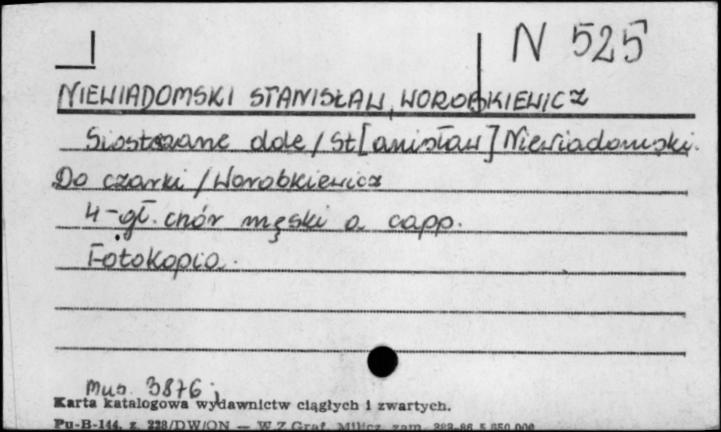 N 525
NIEWIADOMSKI STANISŁAW, WOROBKIEWICZ
Siostrzane dole / St[anisław] Niewiadomski.
Do czarki / Worobkiewicz
4-gł. chór męski a capp.
Fotokopia.
Mus. 3876;
Karta katalogowa wydawnictw ciągłych i zwartych.
Pu-B-144, z. 228/DW/ON — W.Z.Graf. Milicz, zam. 5.850.000